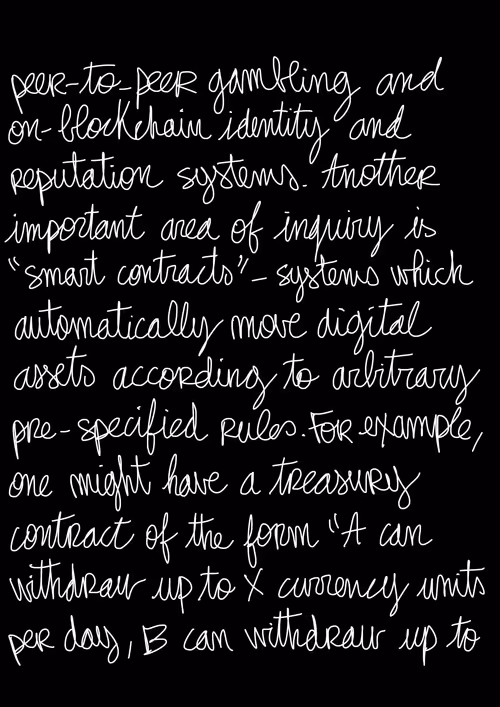 peer-to-peer gambling and
on-blockchain identity and
reputation systems. Another
important area of inquiry is
"smart contracts" - systems which
automatically move digital
assets according to arbitrary
pre-specified rules. For example,
one might have a treasury
contract of the form "A can
withdraw up to X currency units
per day, B can withdraw up to